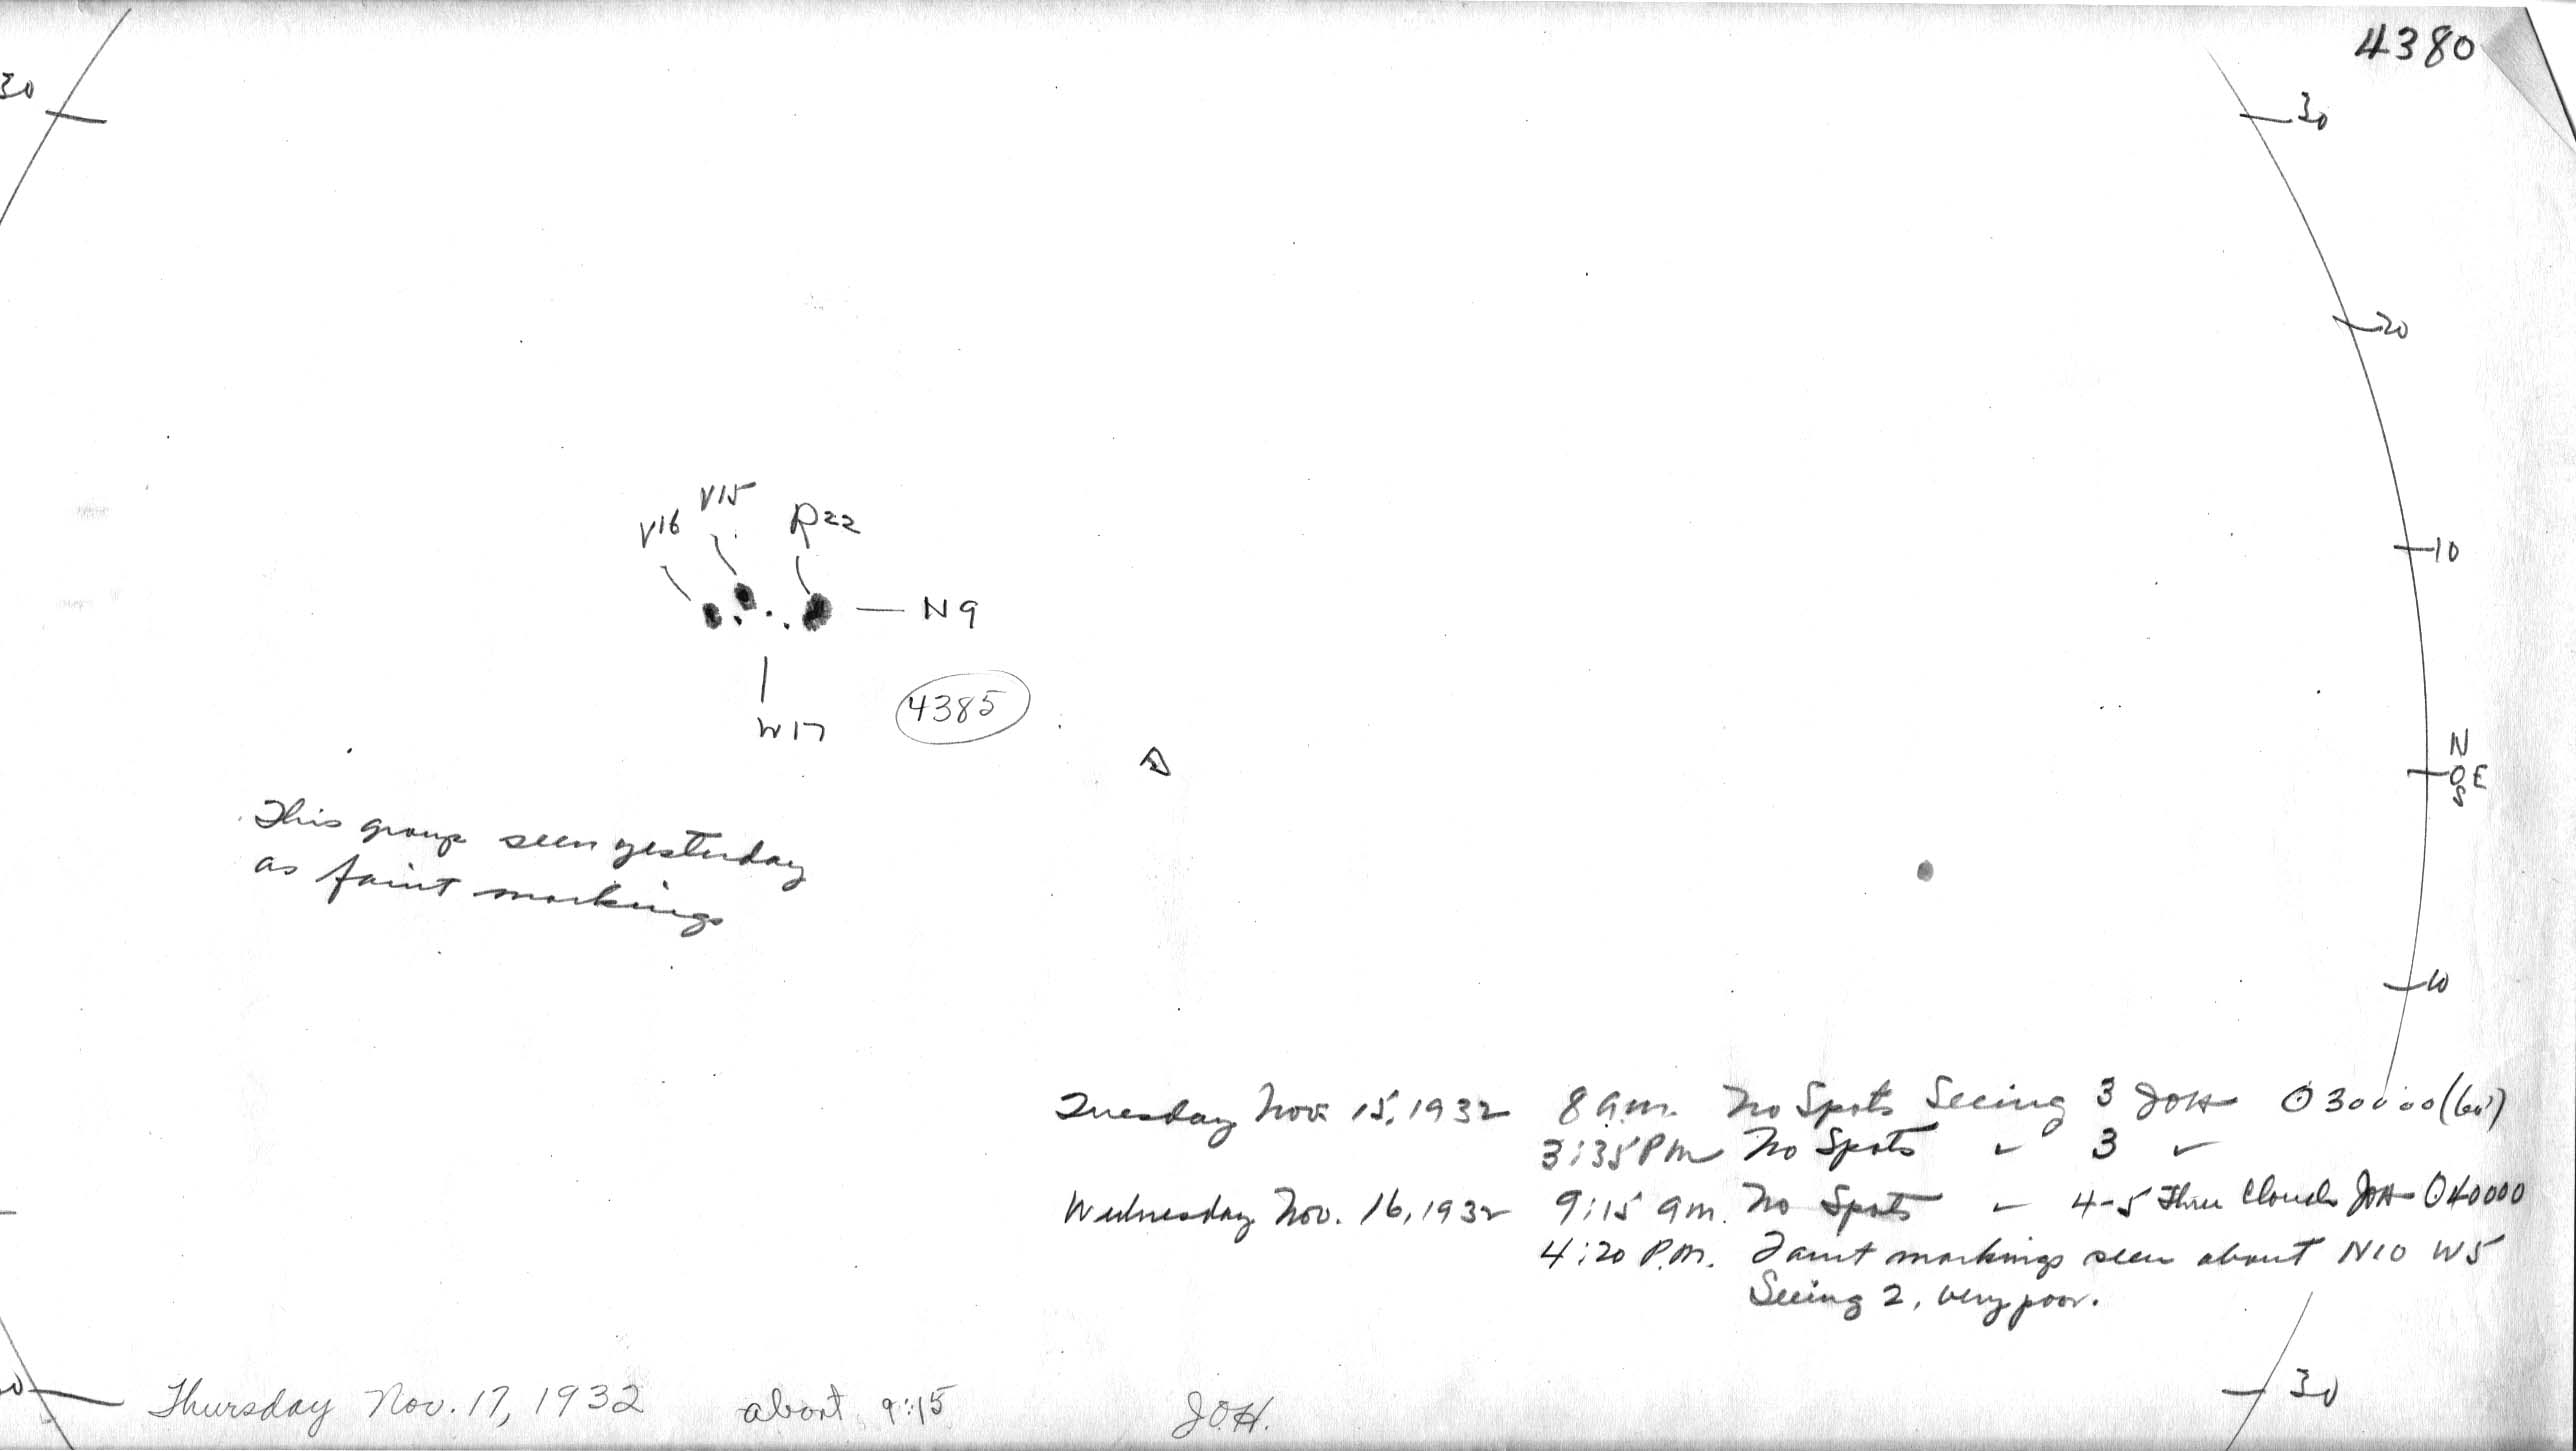 4380
30
30
20
V15
V16
R22
10
N9
4385
W17
N
0 E
S
This group seen yesterday
as faint markings
10
Tuesday Nov. 15, 1932 8 a.m. No Spots Seeing 3 JOH
3:35 PM No Spots " 3 "
Wednesday Nov. 16, 1932 9:15 am. No Spots " 4-5 Thru Clouds JOH
4:20 P.M. Faint markings seen about N10 W5
Seeing 2, very poor.
30
Thursday Nov. 17, 1932 about 9:15 J.O.H.